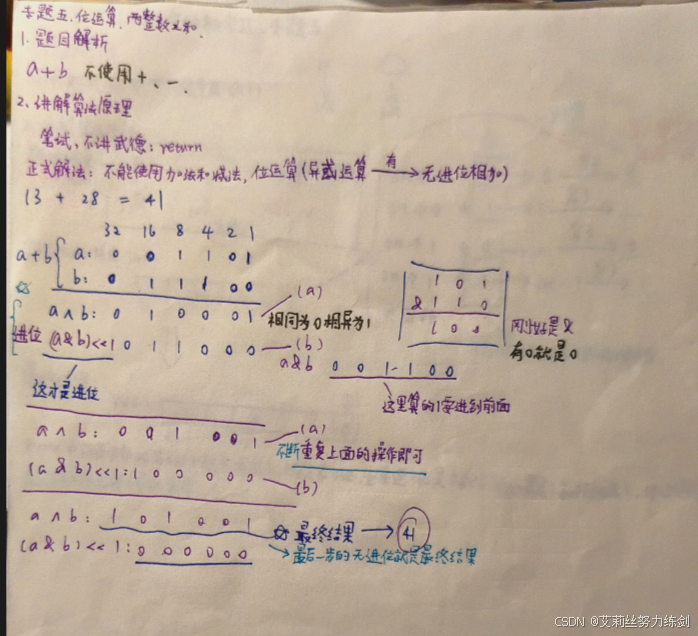 专题五、位运算,两整数之和.
1. 题目解析
a+b 不使用+、-
2、讲解算法原理
笔试、不讲武德: return
正式解法: 不能使用加法和减法, 位运算(异或运算 有→ 无进位相加)
13 + 28 = 41
32 16 8 4 2 1
a+b { a: 0 0 1 1 0 1
b: 0 1 1 1 0 0
a∧b: 0 1 0 0 0 1 (a)
相同为0相异为1
进位 (a&b)<<1 0 1 1 0 0 0 (b)
这才是进位
a&b 0 0 1 1 0 0
这里算的1要进到前面
1 0 1
& 1 1 0
1 0 0
同1才是&
有0就是0
a∧b: 0 0 1 0 0 1 (a)
不断重复上面的操作即可
(a & b)<<1: 1 0 0 0 0 0 (b)
a∧b: 1 0 1 0 0 1 最终结果 → 41
(a & b) << 1: 0 0 0 0 0 0 → 最后一步的无进位就是最终结果
CSDN @艾莉丝努力练剑